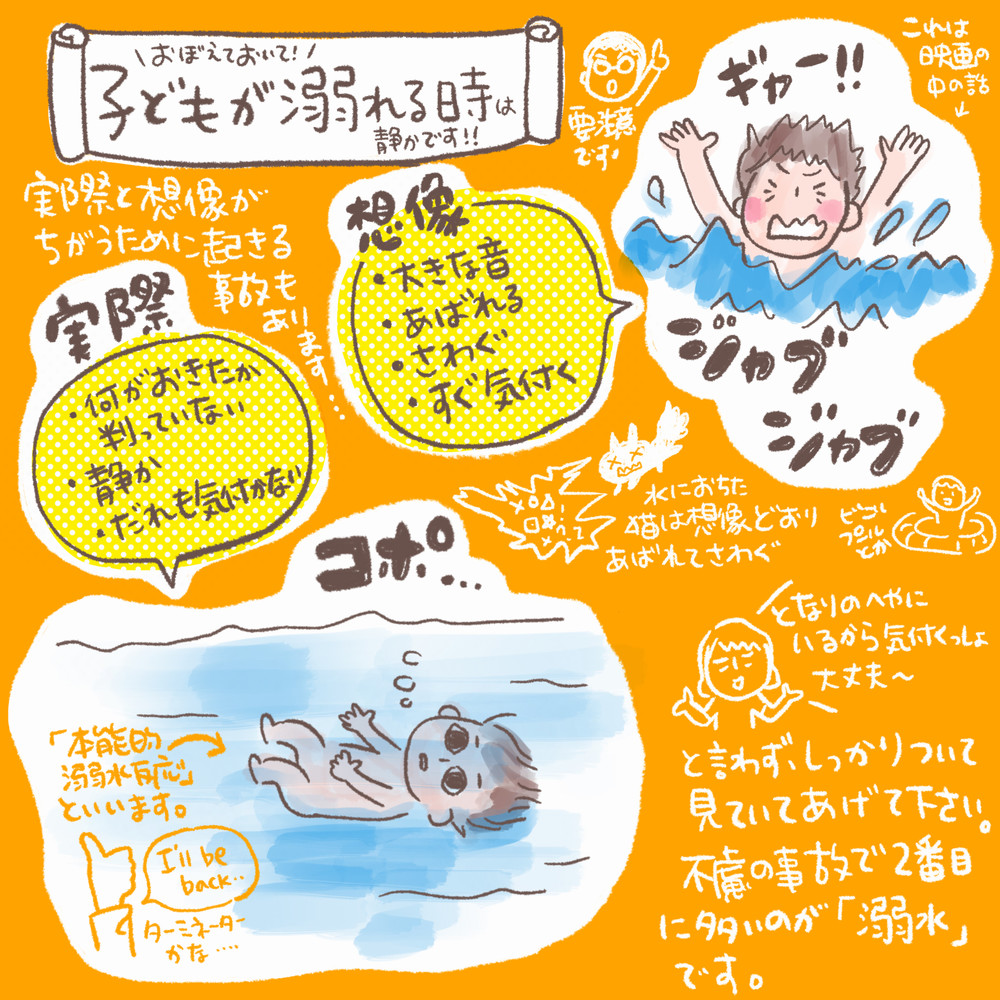 \おぼえておいて!/
子どもが溺れる時は
静かです!!
要注意
です!
これは
映画の
中の話
ギャー!!
ジャブ
ジャブ
実際と想像が
ちがうために起きる
事故も
あります…
想像
・大きな音
・あばれる
・さわぐ
・すぐ気付く
実際
・何がおきたか
判っていない
・静か
・だれも気付かない
水におちた
猫は想像どおり
あばれてさわぐ
ビニール
プール
とか
コポ…
「本能的
溺水反応」
といいます。
I'll be
back..
ターミネーター
かな....
となりのへやに
いるから気付くっしょ
大丈夫〜
と言わず、しっかりついて
見ていてあげて下さい。
不慮の事故で2番目
に多いのが「溺水」
です。